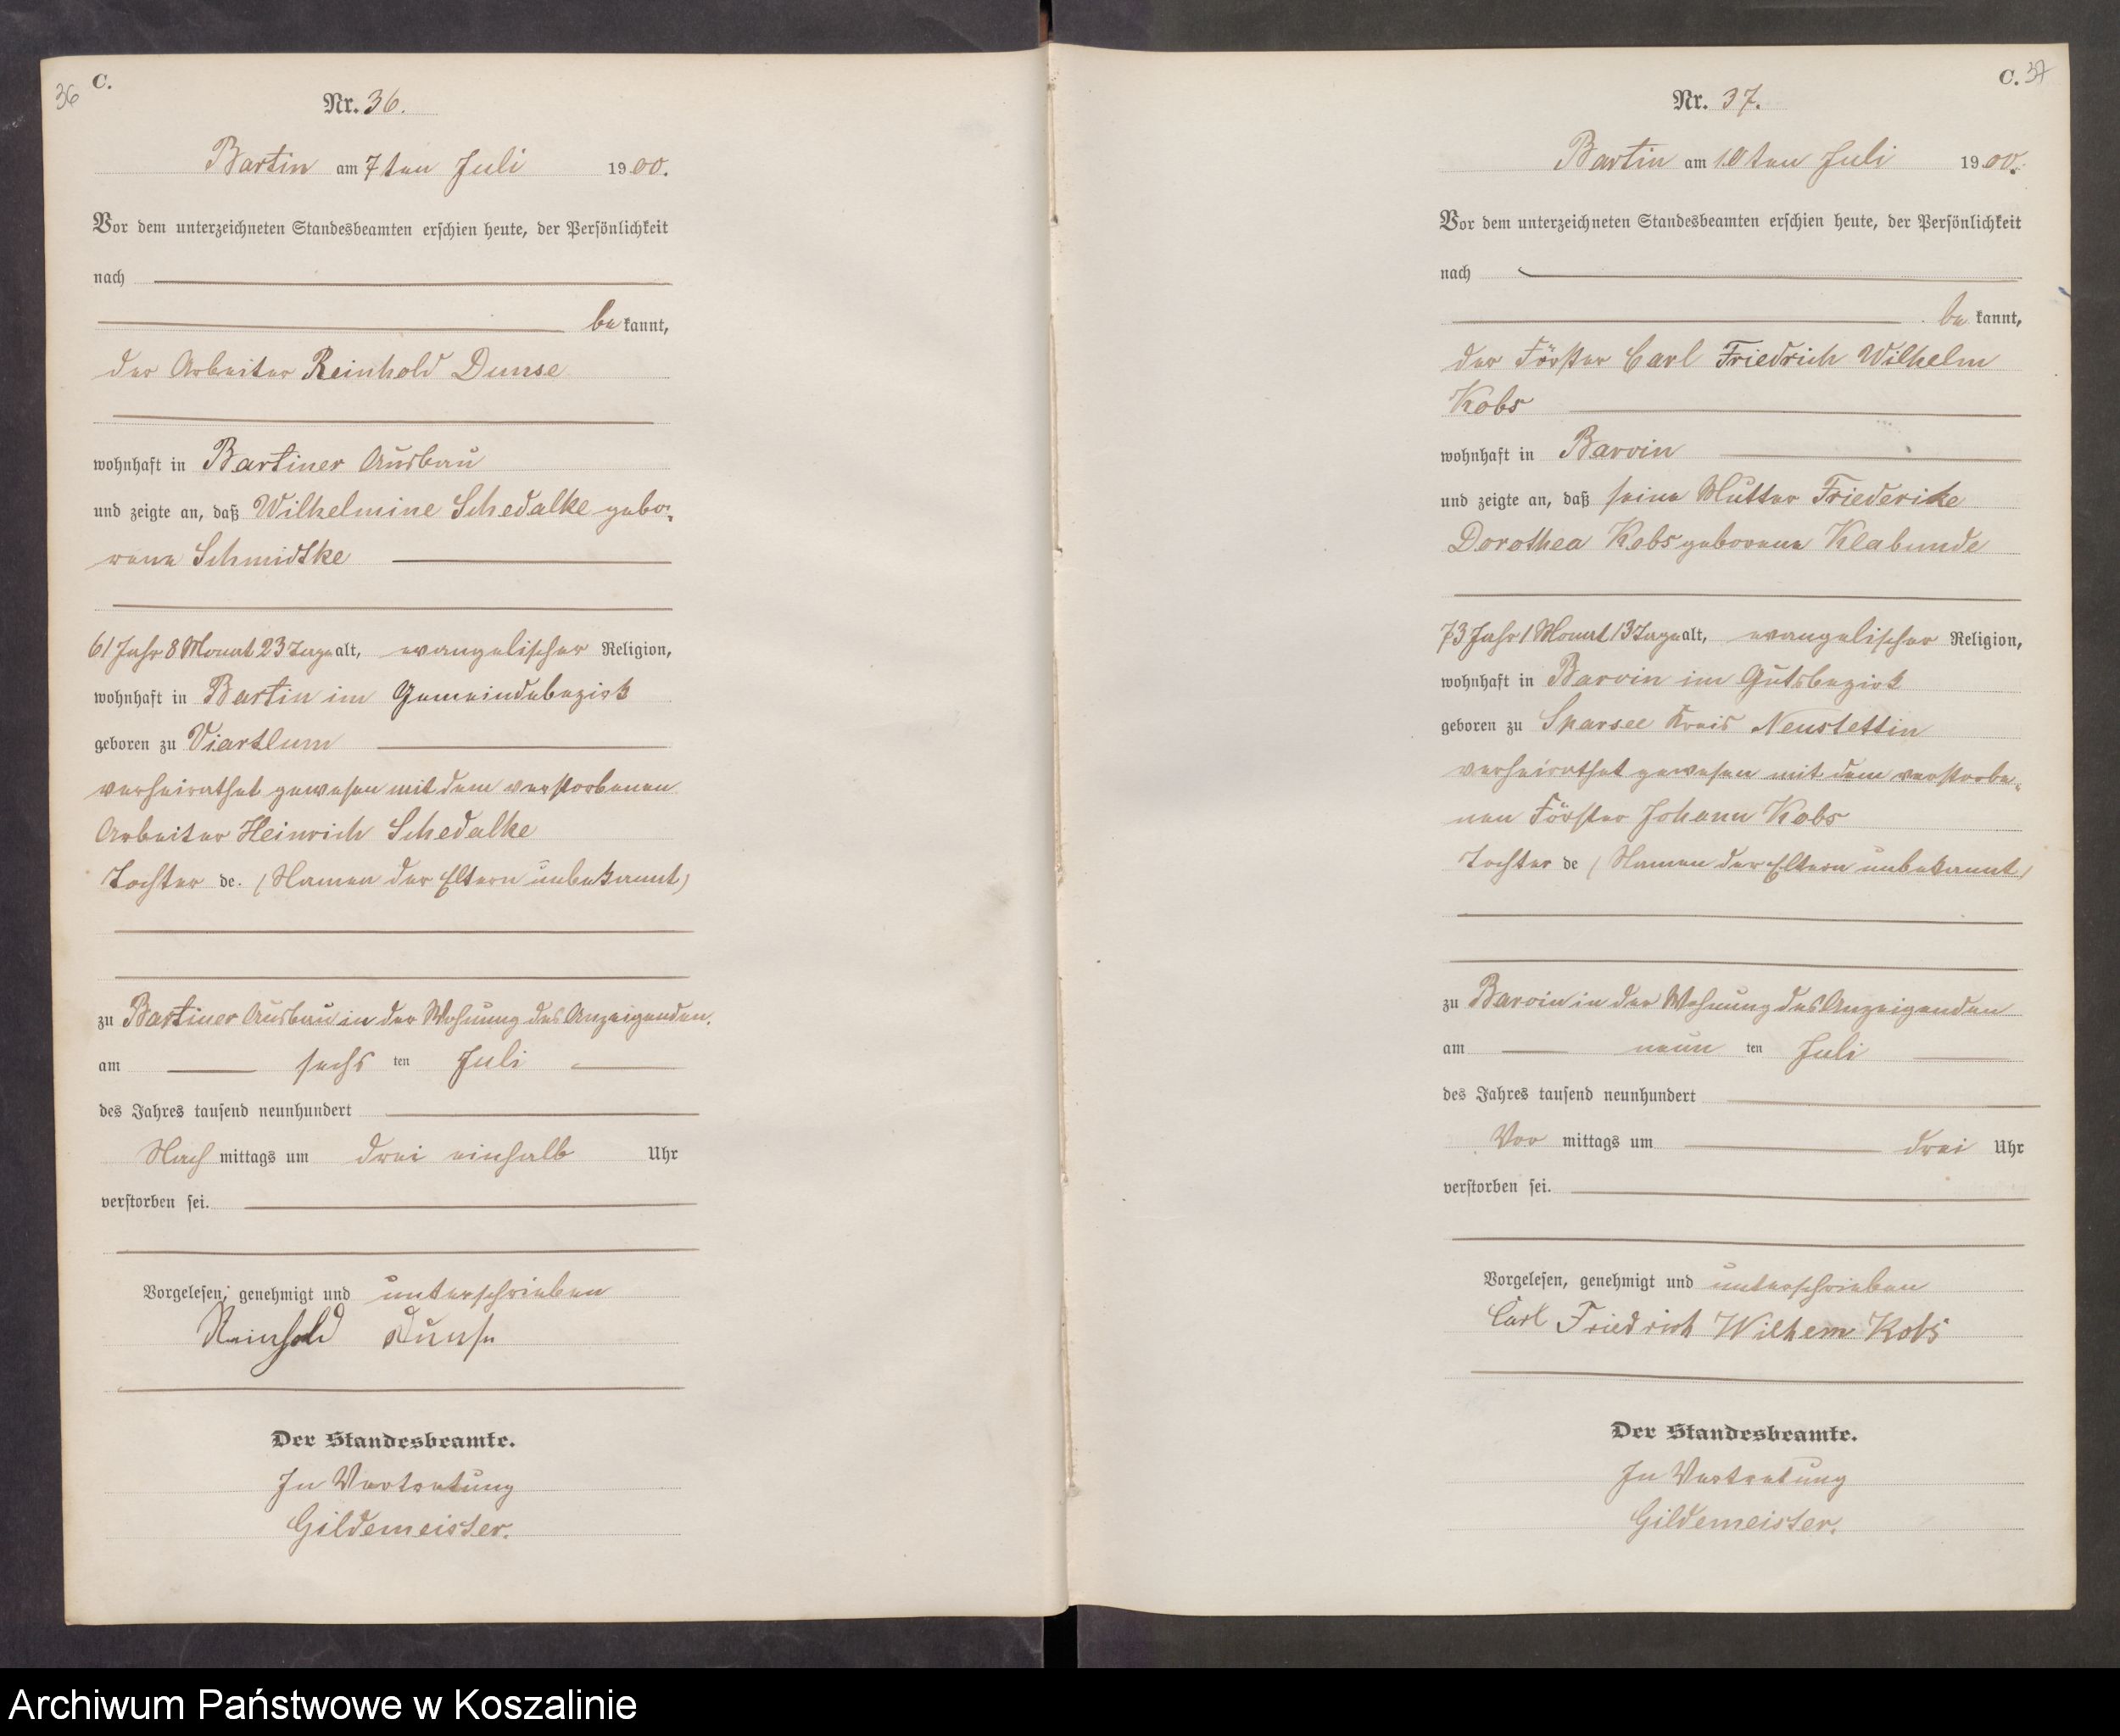 36
C.
Nr. 36.
Bartin am 7ten Juli 1900.
Vor dem unterzeichneten Standesbeamten erschien heute, der Persönlichkeit
nach
bekannt,
der Arbeiter Reinhold Dunse
wohnhaft in Bartiner Ausbau
und zeigte an, daß Wilhelmine Schedalke gebo-
rene Schmidtke
61 Jahr 8 Monat 23 Tage alt, evangelischer Religion,
wohnhaft in Bartin im Gemeindebezirk
geboren zu Viartlum
verheirathet gewesen mit dem verstorbenen
Arbeiter Heinrich Schedalke
Tochter de. (Namen der Eltern unbekannt)
zu Bartiner Ausbau in der Wohnung des Anzeigenden.
am sechsten Juli
des Jahres tausend neunhundert
Nachmittags um drei einhalb Uhr
verstorben sei.
Vorgelesen, genehmigt und unterschrieben
Reinhold Dunse
Der Standesbeamte.
In Vertretung
Gildemeister.
C. 37
Nr. 37.
Bartin am 10ten Juli 1900.
Vor dem unterzeichneten Standesbeamten erschien heute, der Persönlichkeit
nach
bekannt,
der Förster Carl Friedrich Wilhelm
Kobs
wohnhaft in Barvin
und zeigte an, daß seine Mutter Friederike
Dorothea Kobs geborene Klabunde
73 Jahr 1 Monat 13 Tage alt, evangelischer Religion,
wohnhaft in Barvin im Gutsbezirk
geboren zu Sparsee Kreis Neustettin
verheirathet gewesen mit dem verstorbe-
nen Förster Johann Kobs
Tochter de (Namen der Eltern unbekannt)
zu Barvin in der Wohnung des Anzeigenden
am neunten Juli
des Jahres tausend neunhundert
Vormittags um drei Uhr
verstorben sei.
Vorgelesen, genehmigt und unterschrieben
Carl Friedrich Wilhem Kobs
Der Standesbeamte.
In Vertretung
Gildemeister.
Archiwum Państwowe w Koszalinie